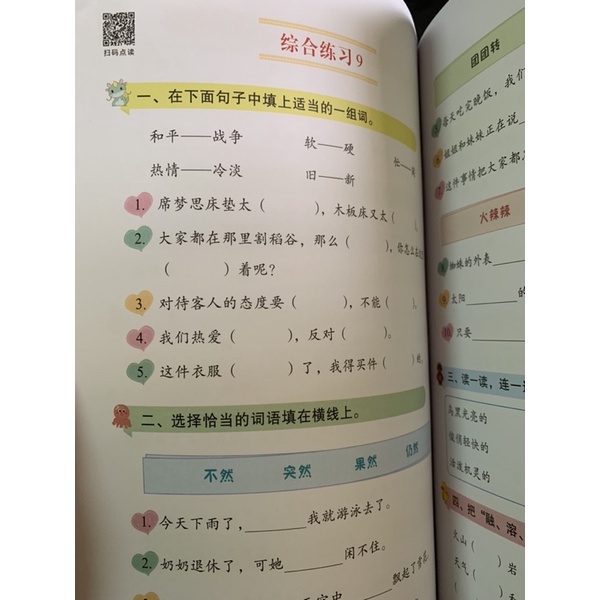 扫码点读
综合练习9
一、在下面句子中填上适当的一组词。
和平——战争 软——硬
热情——冷淡 旧——新 忙——闲
1. 席梦思床垫太（ ），木板床又太（ ）。
2. 大家都在那里割稻谷，那么（ ），你怎么在这
（ ）着呢？
3. 对待客人的态度要（ ），不能（ ）。
4. 我们热爱（ ），反对（ ）。
5. 这件衣服（ ）了，我得买件（ ）
二、选择恰当的词语填在横线上。
不然 突然 果然 仍然
1. 今天下雨了，______我就游泳去了。
2. 奶奶退休了，可她______闲不住。
飘起了雪花
团团转
每天吃完晚饭，我们
姐姐和妹妹正在说
这件事情把大家都
火辣辣
蜘蛛的外表
太阳______的
只要
三、读一读，连一连
乌黑光亮的
活泼机灵的
四、把“融、溶、
火山（ ）岩
天气（